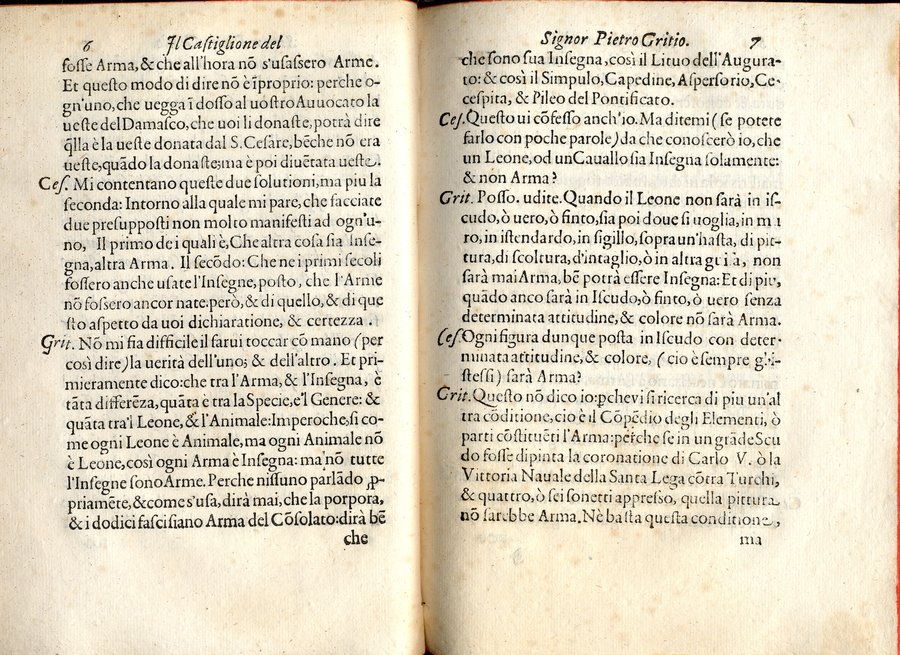 6 Il Castiglione del
fosse Arma, & che all'hora nõ s'usassero Arme.
Et questo modo di dire nõ è ĩproprio: perche o-
gn'uno, che uegga ĩ dosso al uostro Auuocato la
ueste del Damasco, che uoi li donaste, potrà dire
q̃lla è la ueste donata dal S. Cesare, bẽche nõ era
ueste, quãdo la donaste; ma è poi diuẽtata ueste.
Ces. Mi contentano queste due solutioni, ma piu la
seconda: Intorno alla quale mi pare, che facciate
due presupposti non molto manifesti ad ogn'u-
no, Il primo de i quali è, Che altra cosa sia Inse-
gna, altra Arma. Il secõdo: Che ne i primi secoli
fossero anche usate l'Insegne, posto, che l'Arme
nõ fossero ancor nate: però, & di quello, & di que
sto aspetto da uoi dichiaratione, & certezza.
Grit. Nõ mi fia difficile il farui toccar cõ mano (per
così dire) la uerità dell'uno; & dell'altro. Et pri-
mieramente dico: che tra l'Arma, & l'Insegna, è
tãta differẽza, quãta è tra la Specie, e'l Genere: &
quãta tra'l Leone, & l'Animale: Imperoche, si co-
me ogni Leone è Animale, ma ogni Animale nõ
è Leone, così ogni Arma è Insegna: ma nõ tutte
l'Insegne sono Arme. Perche nissuno parlãdo ꝓ-
priamẽte, & come s'usa, dirà mai, che la porpora,
& i dodici fasci siano Arma del Cõsolato: dirà bẽ
che
Signor Pietro Gritio. 7
che sono sua Insegna, così il Lituo dell'Augura-
to: & così il Simpulo, Capedine, Aspersorio, Ce-
cespita, & Pileo del Pontificato.
Ces. Questo ui cõfesso anch'io. Ma ditemi (se potete
farlo con poche parole) da che conoscerò io, che
un Leone, od un Cauallo sia Insegna solamente:
& non Arma?
Grit. Posso. udite. Quando il Leone non sarà in is-
cudo, ò uero, ò finto, sia poi doue si uoglia, in mu
ro, in istendardo, in sigillo, sopra un'hasta, di pit-
tura, di scoltura, d'intaglio, ò in altra guisa, non
sarà mai Arma, bẽ potrà essere Insegna: Et di piu,
quãdo anco sarà in Iscudo, ò finto, ò uero senza
determinata attitudine, & colore nõ sarà Arma.
Ces. Ogni figura dunque posta in Iscudo con deter-
minata attitudine, & colore, (cio è sempre gl'i-
stessi) sarà Arma?
Grit. Questo nõ dico io: pchevi si ricerca di piu un'al
tra cõditione, cio è il Cõpẽdio degli Elementi, ò
parti cõstituẽti l'Arma: perche se in un grãde Scu
do fosse dipinta la coronatione di Carlo V. ò la
Vittoria Nauale della Santa Lega cõtra Turchi,
& quattro, ò sei sonetti appresso, quella pittura
nõ sarebbe Arma. Nè basta questa conditione,
ma